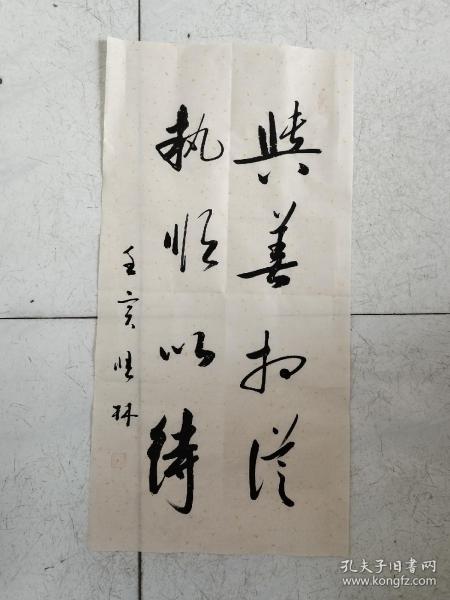 與善相從
執順以待
林
孔夫子旧书网
www.kongfz.com